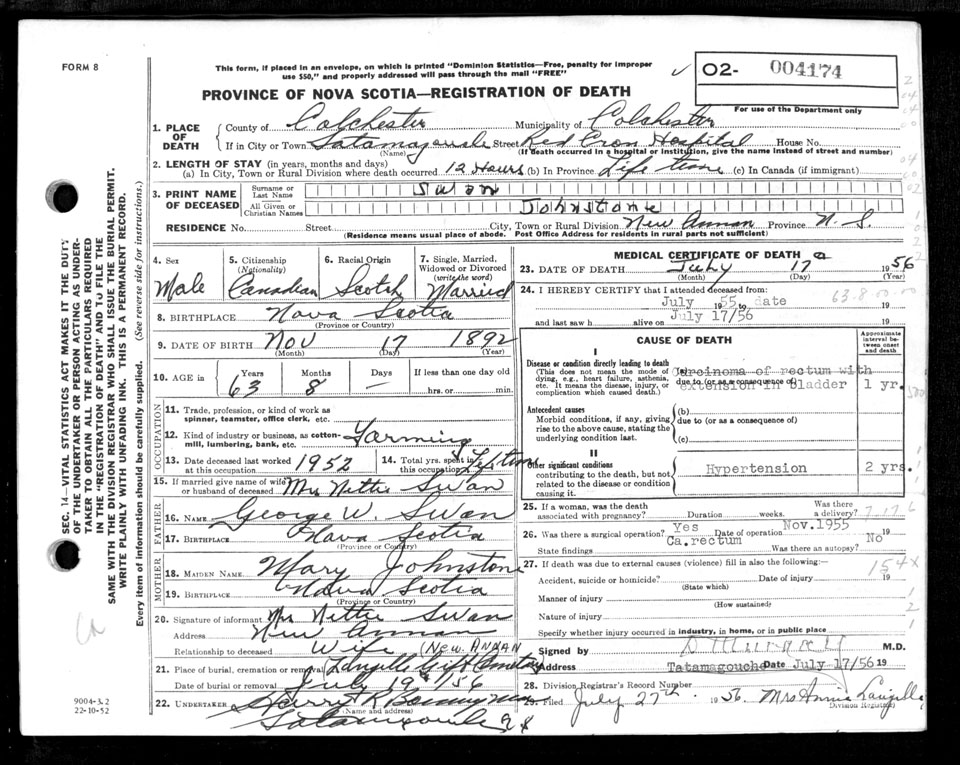 FORM 8
This form, if placed in an envelope, on which is printed "Dominion Statistics—Free, penalty for improper
use $50," and properly addressed will pass through the mail "FREE"
✓ O2- 004174
PROVINCE OF NOVA SCOTIA—REGISTRATION OF DEATH
For use of the Department only
1. PLACE OF DEATH
County of Colchester Municipality of Colchester
If in City or Town Tatamagouche Street Red Cross Hospital House No.
(Name) (If death occurred in a hospital or institution, give the name instead of street and number)
2. LENGTH OF STAY (in years, months and days)
(a) In City, Town or Rural Division where death occurred 12 Hours (b) In Province Life time (c) In Canada (if immigrant)
3. PRINT NAME OF DECEASED
Surname or Last Name Swan
All Given or Christian Names Johnstone
RESIDENCE No. Street City, Town or Rural Division New Annan Province N.S.
(Residence means usual place of abode. Post Office Address for residents in rural parts not sufficient)
4. Sex Male
5. Citizenship (Nationality) Canadian
6. Racial Origin Scotch
7. Single, Married, Widowed or Divorced (write the word) Married
8. BIRTHPLACE Nova Scotia
(Province or Country)
9. DATE OF BIRTH Nov 17 1892
(Month) (Day) (Year)
10. AGE in Years 63 Months 8 Days — If less than one day old hrs. or min.
OCCUPATION
11. Trade, profession, or kind of work as spinner, teamster, office clerk, etc.
12. Kind of industry or business, as cotton-mill, lumbering, bank, etc. Farming
13. Date deceased last worked at this occupation 1952
14. Total yrs. spent in this occupation Lifetime
15. If married give name of wife or husband of deceased Mrs Nettie Swan
FATHER
16. NAME George W. Swan
17. BIRTHPLACE Nova Scotia
(Province or Country)
MOTHER
18. MAIDEN NAME Mary Johnstone
19. BIRTHPLACE Nova Scotia
(Province or Country)
20. Signature of informant Mrs Nettie Swan
Address New Annan
Relationship to deceased Wife (New ANNAN
21. Place of burial, cremation or removal
Date of burial or removal July 19th/56
22. UNDERTAKER Harry
(Name and address)
MEDICAL CERTIFICATE OF DEATH
23. DATE OF DEATH July 17 1956
(Month) (Day) (Year)
24. I HEREBY CERTIFY that I attended deceased from:
July 1955 to date 19
and last saw h alive on July 17/56 19
63-8 00-00
CAUSE OF DEATH
Approximate interval between onset and death
I
Disease or condition directly leading to death
(This does not mean the mode of dying, e.g., heart failure, asthenia, etc. It means the disease, injury, or complication which caused death.)
Carcinoma of rectum with
due to (or as a consequence of)
extension in Bladder 1 yr.
Antecedent causes
Morbid conditions, if any, giving rise to the above cause, stating the underlying condition last.
(b)
due to (or as a consequence of)
(c)
II
Other significant conditions
contributing to the death, but not related to the disease or condition causing it.
Hypertension 2 yrs.
25. If a woman, was the death associated with pregnancy? Duration weeks. Was there a delivery?
26. Was there a surgical operation? Yes Date of operation Nov.1955 19
State findings Ca.rectum Was there an autopsy? No
27. If death was due to external causes (violence) fill in also the following:—
Accident, suicide or homicide? Date of injury 19
(State which)
Manner of injury
(How sustained)
Nature of injury
Specify whether injury occurred in industry, in home, or in public place
Signed by M.D.
Address Tatamagouche Date July 17/56 19
28. Division Registrar's Record Number
29. Filed July 27th 1956 Mrs Annie Langille
Division Registrar
154X
SEC. 14—VITAL STATISTICS ACT MAKES IT THE DUTY
OF THE UNDERTAKER OR PERSON ACTING AS UNDER-
TAKER TO OBTAIN ALL THE PARTICULARS REQUIRED
IN THE "REGISTRATION OF DEATH" AND TO FILE THE
SAME WITH THE DIVISION REGISTRAR WHO SHALL ISSUE THE BURIAL PERMIT.
WRITE PLAINLY WITH UNFADING INK. THIS IS A PERMANENT RECORD.
Every item of information should be carefully supplied. (See reverse side for instructions.)
9004-3.2
22-10-52